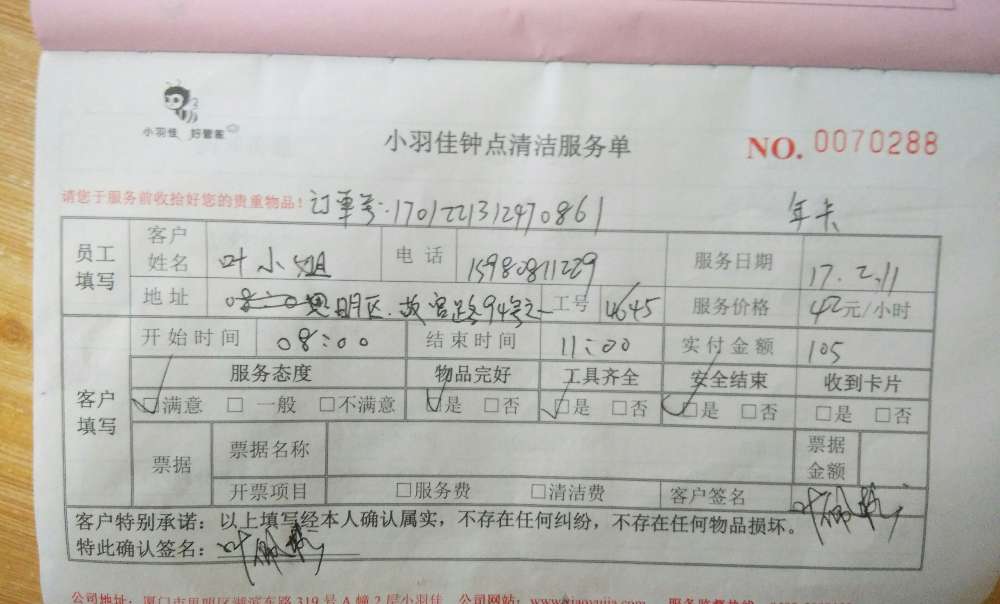 小羽佳 好管家
小羽佳钟点清洁服务单
NO. 0070288
请您于服务前收拾好您的贵重物品! 订单号:1701221312470861 年卡
员工填写 客户姓名 叶小姐 电话 15980811229 服务日期 17.2.11
地址 思明区.故宫路94号之一 工号 4645 服务价格 42元/小时
客户填写 开始时间 08:00 结束时间 11:00 实付金额 105
服务态度 物品完好 工具齐全 安全结束 收到卡片
☑满意 □ 一般 □不满意 ☑是 □否 ☑是 □否 ☑是 □否 □是 □否
票据 票据名称 票据金额
开票项目 □服务费 □清洁费 客户签名 叶
客户特别承诺:以上填写经本人确认属实,不存在任何纠纷,不存在任何物品损坏。
特此确认签名:叶
公司地址:厦门市思明区湖滨东路319号A幢2层小羽佳 公司网站:www.xiaoyujia.com 服务监督热线: